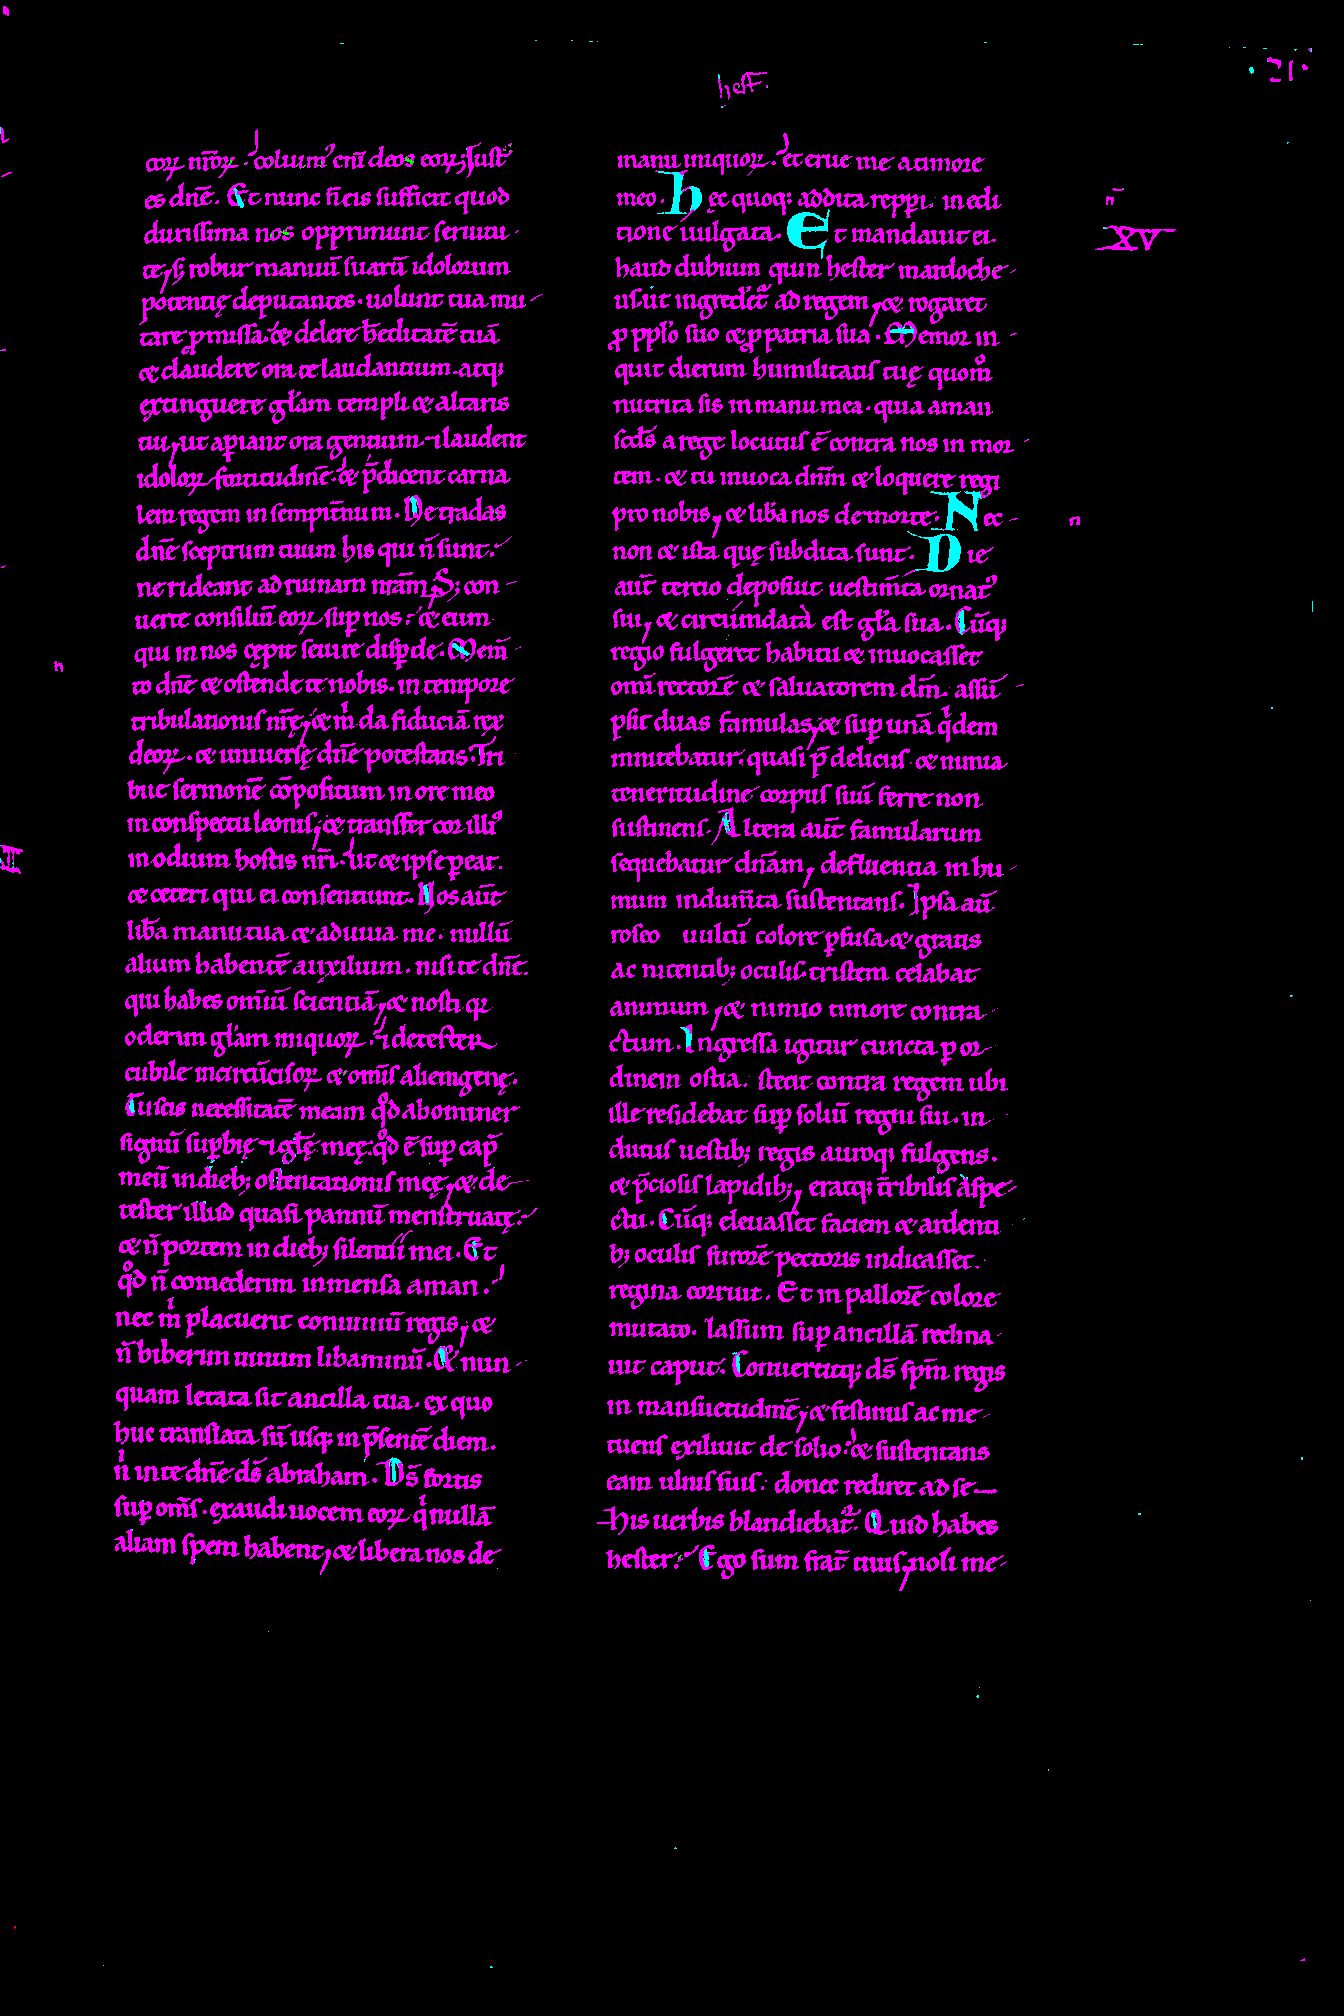 hest.
.21.
eorꝝ nr̄oꝝ. coluimꝰ eni deos eorꝝ; Just᷒
es dnē. Et nunc n̄ eis sufficit quod
durissima nos opprimunt seruitu
te, sꝫ robur manuū suarū idolorum
potentię deputantes. uolunt tua mu
tare ꝓmissa. & delere hereditatē tuā
& claudere ora te laudantium. atqꝫ
extinguere gl̄am templi & altaris
tui, ut aꝑiant ora gentium ⁊ laudent
idoloꝝ fortitudinē. & p̄dicent carna
lem regem in sempit̄num. Ne tradas
dnē sceptrum tuum his qui n̄ sunt.
ne rideant ad ruinam nr̄am, Sꝫ con
uerte consiliū eoꝝ suꝑ nos. & eum
qui in nos cępit seuire disꝑde. Mem̄
to dnē & ostende te nobis. in tempore
tribulationis nr̄ę, & m̄ da fiduciā rex
deoꝝ. & uniuersę dnē potestatis. Tri
bue sermonē cōpositum in ore meo
in conspectu leonis, & transfer cor illiꝰ
in odium hostis nr̄i. ut & ipse ꝑeat.
& ceteri qui ei consentiunt. Nos aut̄
lib̄a manu tua & adiuua me. nullū
alium habentē auxilium. nisi te dnē.
qui habes omniū scientiā, & nosti qꝛ
oderim gl̄am iniquoꝝ. ⁊ detester
cubile incircūcisoꝝ & omīs alienigenę.
Tu scis necessitatē meam qd̄ abominer
signū suꝑbię ⁊ gl̄ę meę. qd̄ ē suꝑ cap̄
meū in diebꝫ ostentationis meę, & de
tester illud quasi pannū menstruatę.
& n̄ portem in diebꝫ silentii mei. Et
qd̄ n̄ comederim in mensa aman.
nec m̄ placuerit conuiuiū regis, &
n̄ biberim uinum libaminū. Et nun
quam letata sit ancilla tua. ex quo
huc translata sū usqꝫ in p̄sentē diem.
n̄ in te dnē ds̄ abraham. Ds̄ fortis
suꝑ om̄s. exaudi uocem eoꝝ q̄ nullā
aliam spem habent, & libera nos de
manu iniquoꝝ. et erue me a timore
meo. Hęc quoqꝫ addita repꝑi. in edi
tione uulgata. Et mandauit ei.
haud dubium quin hester mardoche
us. ut ingrederet᷑ ad regem, & rogaret
ꝓ pplo suo & ꝓ patria sua. Memor in
quit dierum humilitatis tuę quom̊
nutrita sis in manu mea. quia aman
scds̄ a rege locutus ē contra nos in mor
tem. & tu inuoca dnm̄ & loquere regi
pro nobis, & lib̄a nos de morte. Nec
non & ista quę subdita sunt. Die
aut̄ tercio deposuit uestim̄ta ornatꝰ
sui, & circundata est gl̄a sua. Cūqꝫ
regio fulgeret habitu & inuocasset
omniū rectorē & saluatorem dm̄. assū
psit duas famulas, & suꝑ unā qⁱdem
innitebatur. quasi p̄ deliciis & nimia
teneritudine corpus suū ferre non
sustinens. Altera aut̄ famularum
sequebatur dnam̄, defluentia in hu
mum indum̄ta sustentans. Ipsa aū
roseo uultū colore ꝑfusa. & gratis
ac nitentibꝫ oculis. tristem celabat
animum, & nimio timore contra
ctum. Ingressa igitur cuncta ꝑ or
dinem ostia. stetit contra regem ubi
ille residebat suꝑ soliū regni sui. in
dutus uestibꝫ regis auroqꝫ fulgens.
& p̄ciosis lapidibꝫ, eratqꝫ tr̄ribilis aspe
ctu. Cūqꝫ eleuasset faciem & ardenti
bꝫ oculis furorē pectoris indicasset.
regina corruit. Et in pallorē colore
mutato. lassum suꝑ ancillā reclina
uit caput. Conuertitqꝫ ds̄ spm̄ regis
in mansuetudinē, & festinus ac me
tuens exiliuit de solio. & sustentans
eam ulnis suis. donec rediret ad se
His uerbis blandiebat᷑. Quid habes
hester. Ego sum frat̄ tuus, noli me
n̄
XV
n
n